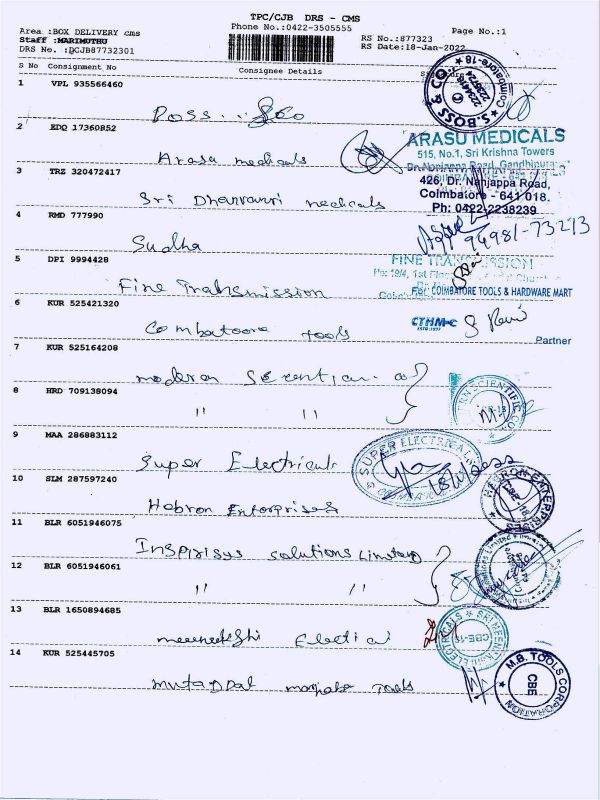 TPC/CJB DRS - CMS
Phone No.:0422-3505555
Page No.:1
Area :BOX DELIVERY CMS
Staff :MARIMUTHU
DRS No. :DCJB87732301
RS No.:877323
RS Date:18-Jan-2022
S No Consignment No Consignee Details
1 VPL 935566460
Boss
S.BOSS & CO
Coimbatore-18
2 EDQ 17360852
Arasu medicals
ARASU MEDICALS
515, No.1, Sri Krishna Towers
Dr.Nanjappa Road, Gandhipuram
3 TRZ 320472417
Sri Dhanvanri medicals
426, Dr. Nanjappa Road,
Coimbatore - 641 018.
Ph: 0422-2238239
4 RMD 777990
Sudha
94981-73273
5 DPI 9994428
Fine Transmission
FINE TRANSMISSION
6 KUR 525421320
Coimbatoore tools
For COIMBATORE TOOLS & HARDWARE MART
CTHM-C
Partner
7 KUR 525164208
moderan
8 HRD 709138094
" "
9 MAA 286883112
Super Electricals
SUPER ELECTRICAL
10 SLM 287597240
Hebron Enterprises
HEBRON ENTERPRISES
11 BLR 6051946075
Inspirisys solutions Limited
12 BLR 6051946061
" "
13 BLR 1650894685
meeneetshi Electical
SRI MEENAKSHI ELECTRICALS
CBE-1
14 KUR 525445705
tools
M.B. TOOLS CORPORATION
CBE